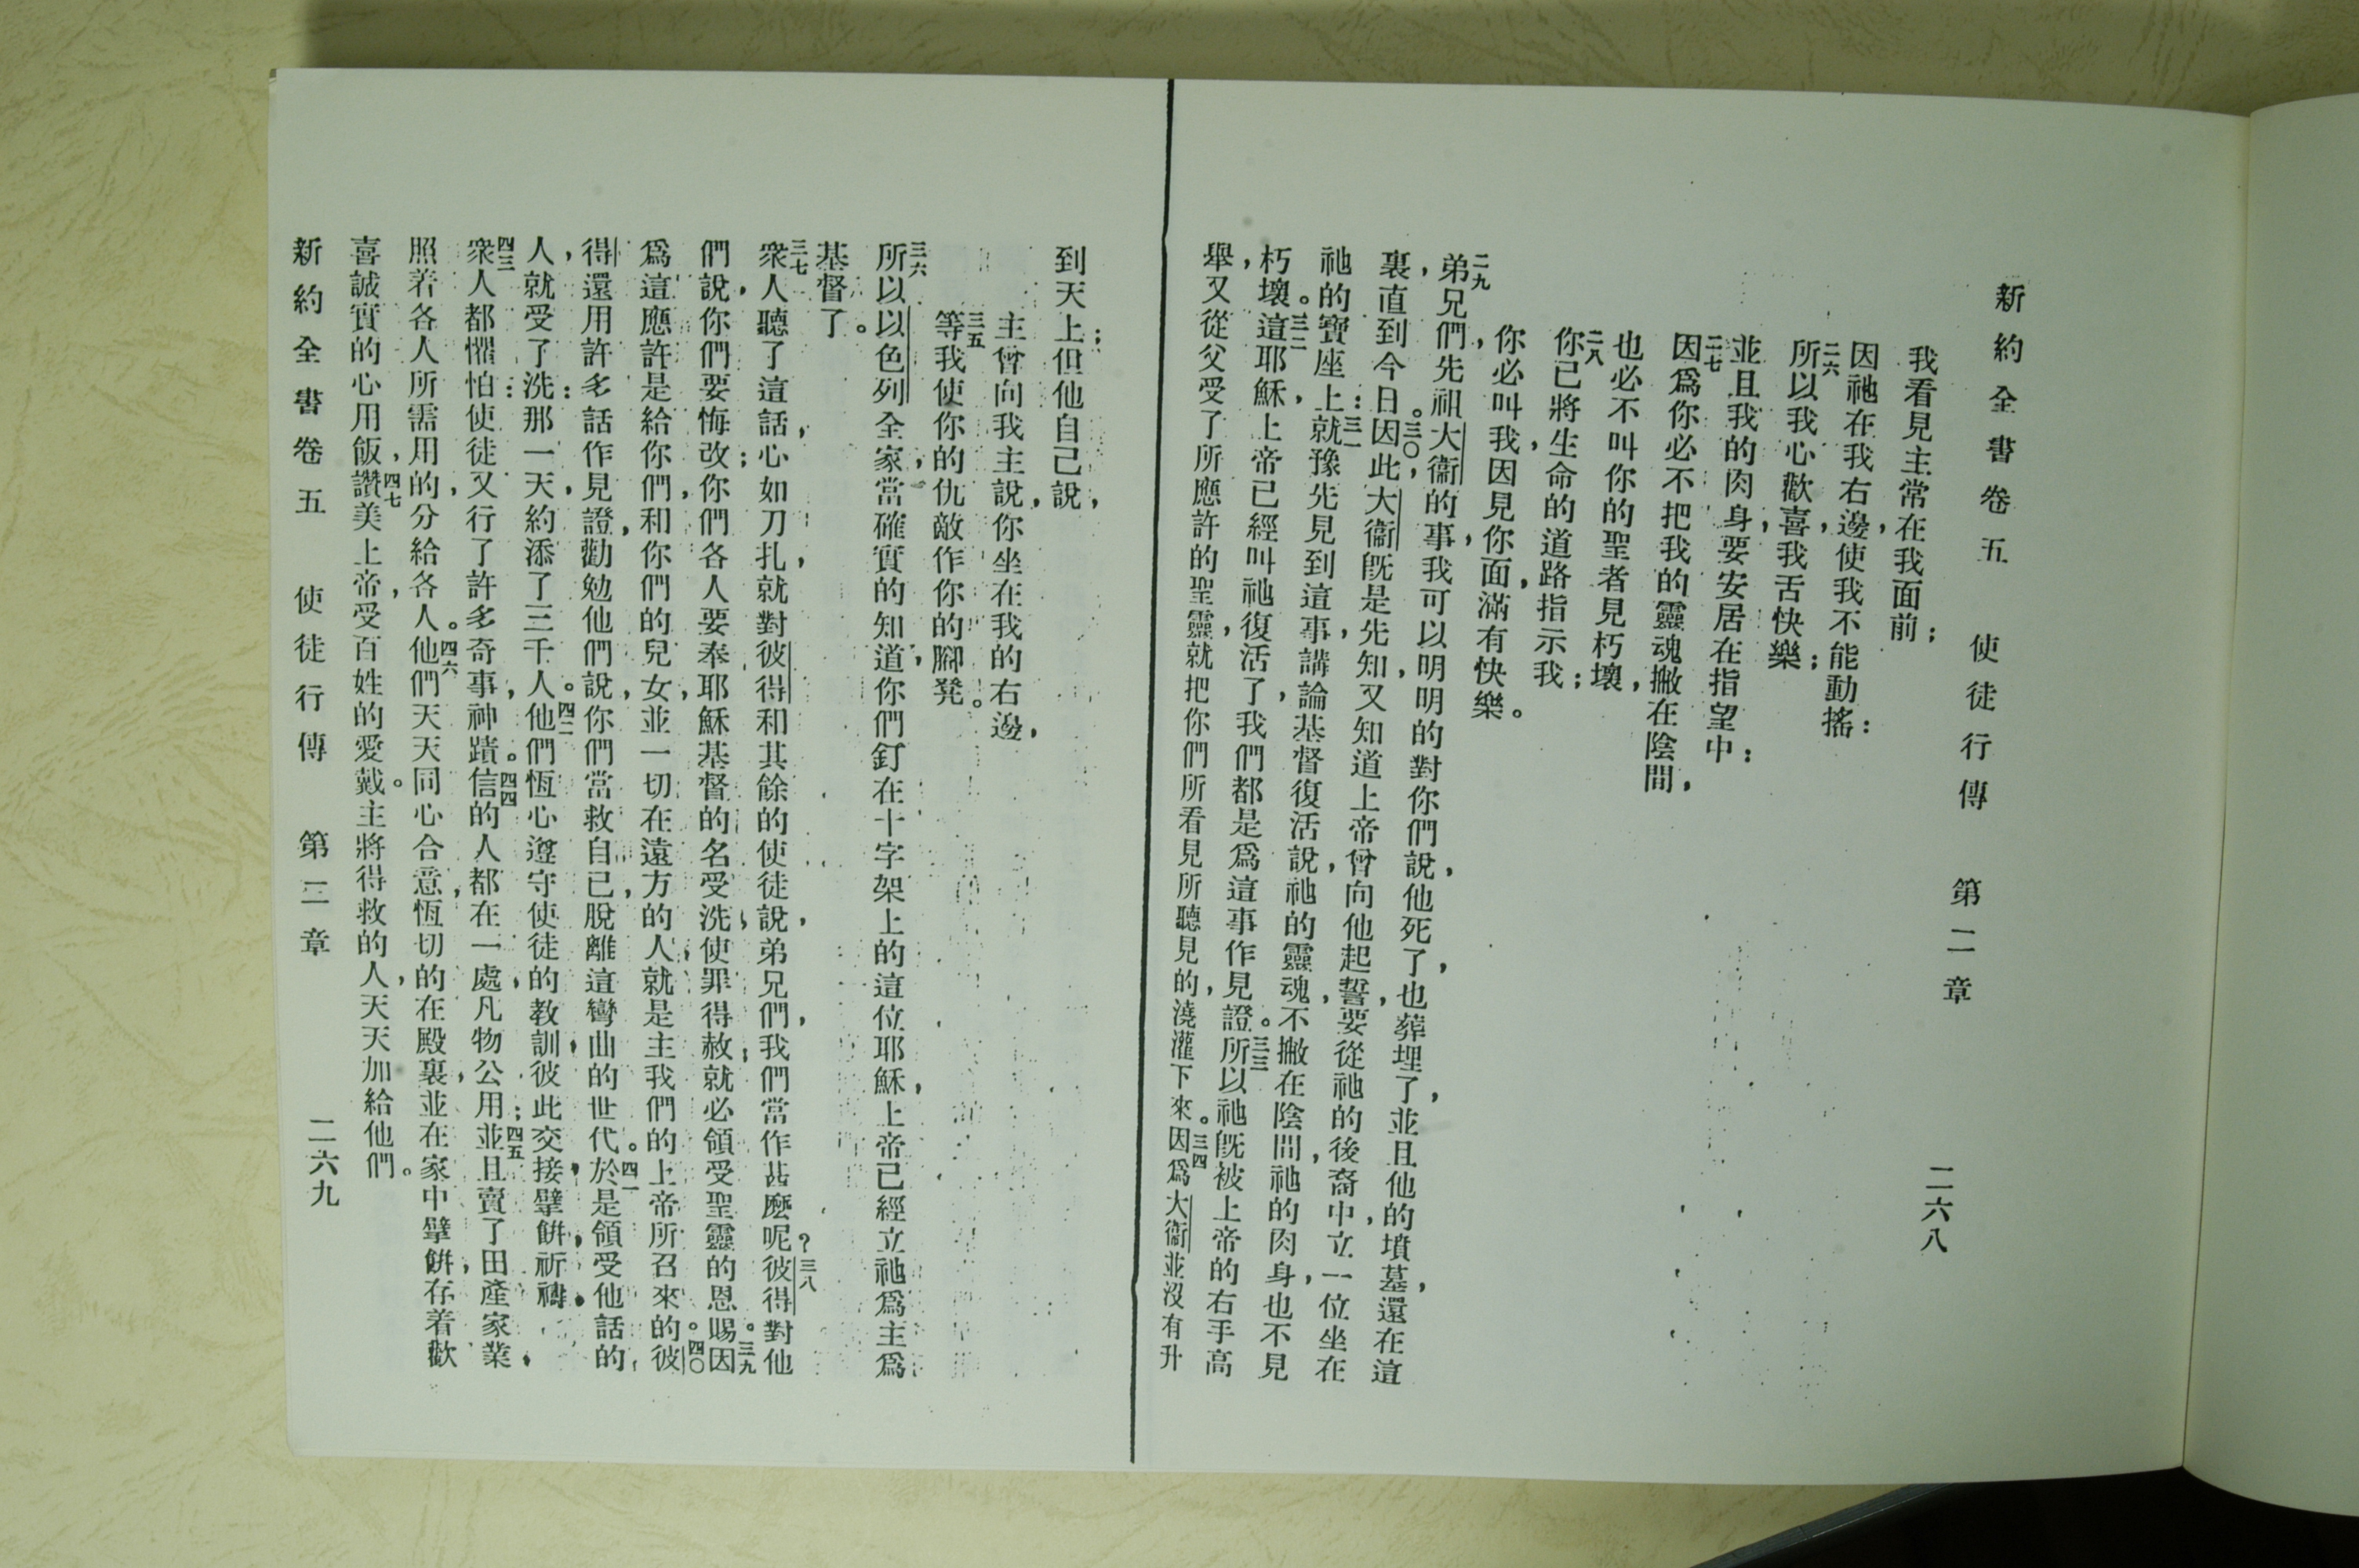 新約全書卷五　使徒行傳　第二章　二六八
我看見主常在我面前；
因祂在我右邊，使我不能動搖：
二六所以我心歡喜，我舌快樂；
並且我的肉身，要安居在指望中：
二七因爲你必不把我的靈魂撇在陰間，
也必不叫你的聖者見朽壞，
二八你已將生命的道路指示我；
你必叫我，因見你面，滿有快樂。
二九弟兄們，先祖大衞的事，我可以明明的對你們說，他死了，也葬埋了，並且他的墳墓，還在這
裏，直到今日。三〇因此，大衞旣是先知，又知道上帝曾向他起誓，要從祂的後裔中，立一位坐在
祂的寶座上：三一就豫先見到這事，講論基督復活說，祂的靈魂，不撇在陰間，祂的肉身，也不見
朽壞。三二這耶穌，上帝已經叫祂復活了，我們都是爲這事作見證。三三所以祂旣被上帝的右手高
舉，又從父受了所應許的聖靈，就把你們所看見所聽見的，澆灌下來。三四因爲大衞並沒有升
到天上；但他自己說，
主曾向我主說，你坐在我的右邊，
三五等我使你的仇敵作你的腳凳。
三六所以以色列全家，當確實的知道，你們釘在十字架上的這位耶穌，上帝已經立祂爲主爲
基督了。
三七衆人聽了這話，心如刀扎，就對彼得和其餘的使徒說，弟兄們，我們當作甚麼呢？三八彼得對他
們說，你們要悔改；你們各人要奉耶穌基督的名受洗，使罪得赦；就必領受聖靈的恩賜。三九因
爲這應許是給你們，和你們的兒女，並一切在遠方的人，就是主我們的上帝所召來的。四〇彼
得還用許多話作見證，勸勉他們說，你們當救自已，脫離這彎曲的世代。四一於是領受他話的
人，就受了洗：那一天，約添了三千人。四二他們恆心遵守使徒的教訓，彼此交接，擘餅，祈禱。
四三衆人都懼怕：使徒又行了許多奇事，神蹟。四四信的人都在一處，凡物公用；四五並且賣了田產家業，
照着各人所需用的，分給各人。四六他們天天同心合意，恆切的在殿裏，並在家中擘餅，存着歡
喜誠實的心用飯，四七讚美上帝，受百姓的愛戴。主將得救的人，天天加給他們。
新約全書卷五　使徒行傳　第二章　二六九